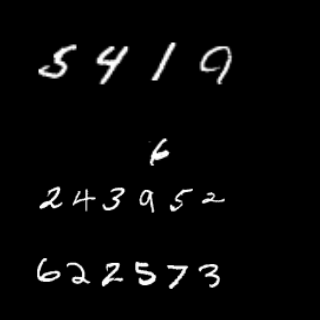 5419
6
243952
622573